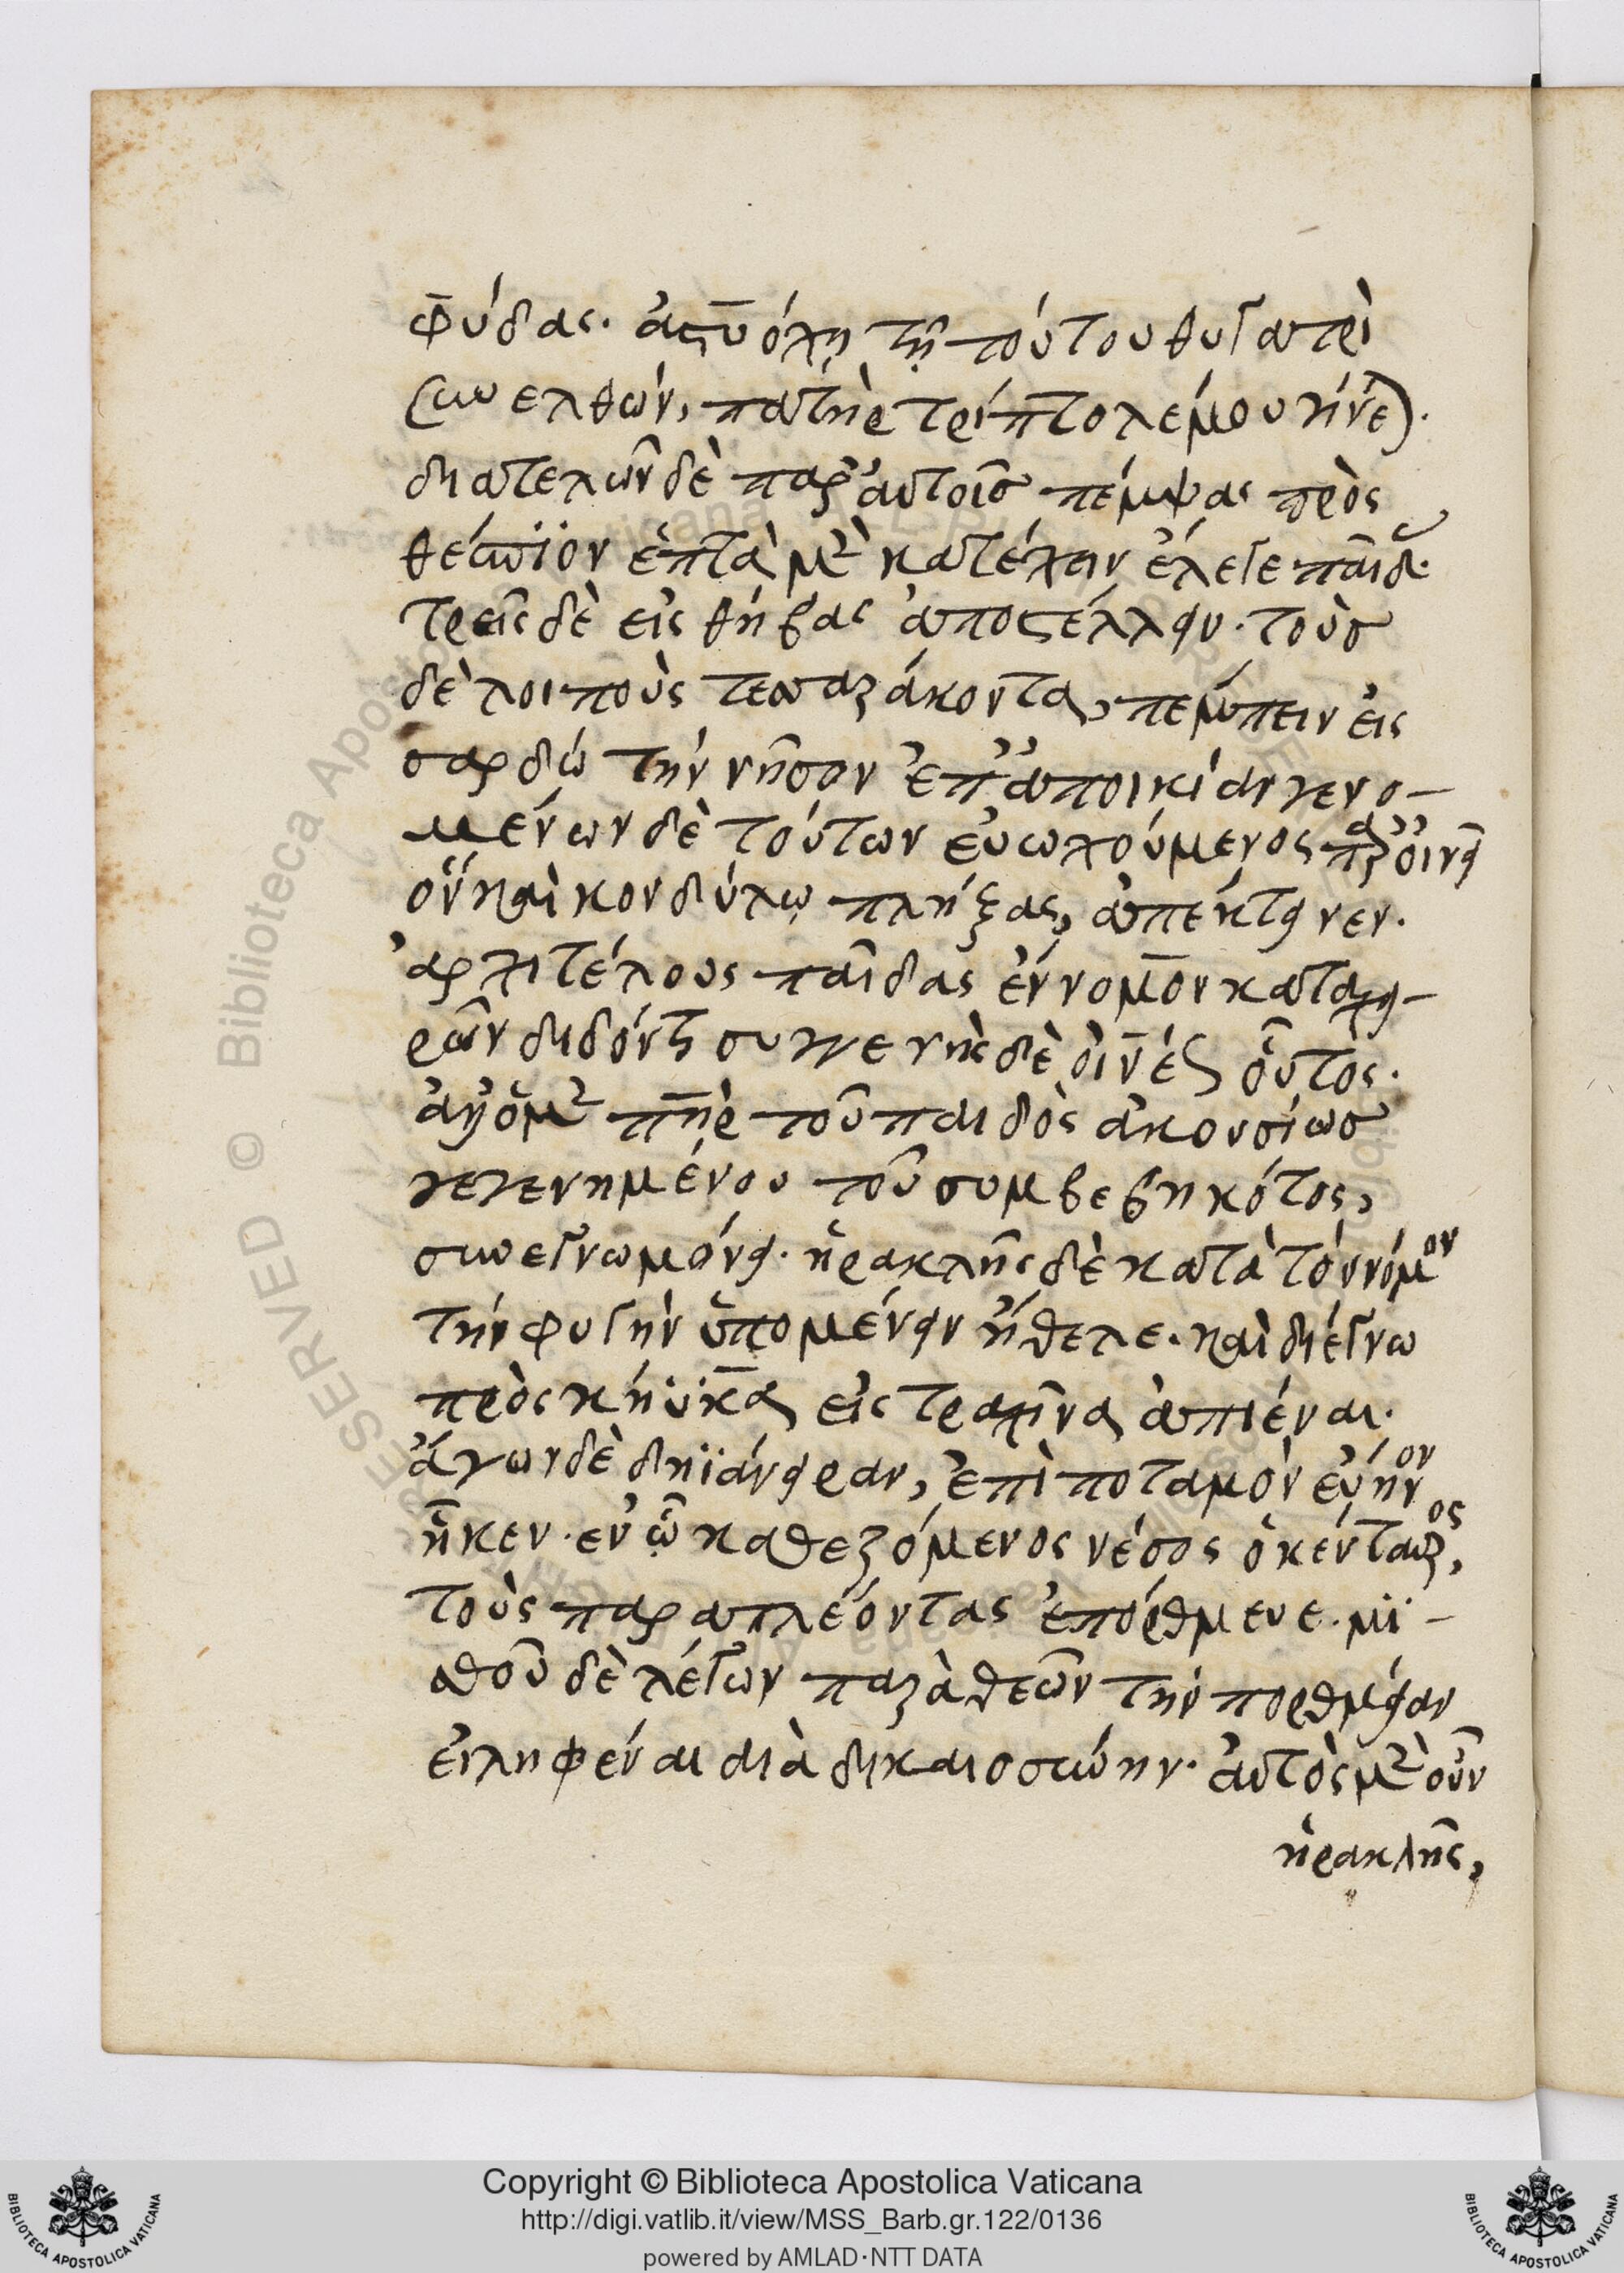 φύδας. ἀστυόχη τῇ τούτου θυγατρὶ
συνελθών, πατὴρ τριπτολέμου γίνε).
διατελῶν δὲ παρ' αὐτοῖς πέμψας πρὸς
θέσπϊον ἑπτὰ μὲν κατέχειν ἔλεγε παῖδ.
τρεῖς δὲ εἰς θήβας ἀποστέλλειν. τοὺς
δὲ λοιποὺς τεσσαράκοντα, πέμπειν εἰς
σαρδὼ τὴν νῆσον ἐπ' ἀποικίαν γενο-
μένων δὲ τούτων εὐωχούμενος παρ' οἰνεῖ
οὖν καὶ κονδύλῳ πλήξας, ἀπέκτεινεν.
ἀρχιτέλους παῖδας ἔννομον κατὰ χει-
ρῶν διδόντα συγγενὴς δὲ οἰνέως οὗτος.
ἀλλ' ὁ μὲν πατὴρ τοῦ παιδὸς ἀκουσίως
γεγενημένου τοῦ συμβεβηκότος,
συνεγνωμόνει. ἡρακλῆς δὲ κατὰ τὸν νόμον
τὴν φυγὴν ὑπομένειν ἤθελε. καὶ διέγνω
πρὸς κήϋκα εἰς τραχῖνα ἀπιέναι.
ἄγων δὲ δηϊάνειραν, ἐπὶ ποταμὸν εὔηνον
ἧκεν. ἐν ᾧ καθεζόμενος νέσος ὁ κένταυρος,
τοὺς παραπλέοντας ἐπόρθμευε. μι-
σθοῦ δὲ λέγων παρὰ θεῶν τὴν πορθμείαν
εἰληφέναι διὰ δικαιοσύνην. αὐτὸς μὲν οὖν
ἡρακλῆς,
Copyright © Biblioteca Apostolica Vaticana
http://digi.vatlib.it/view/MSS_Barb.gr.122/0136
powered by AMLAD·NTT DATA